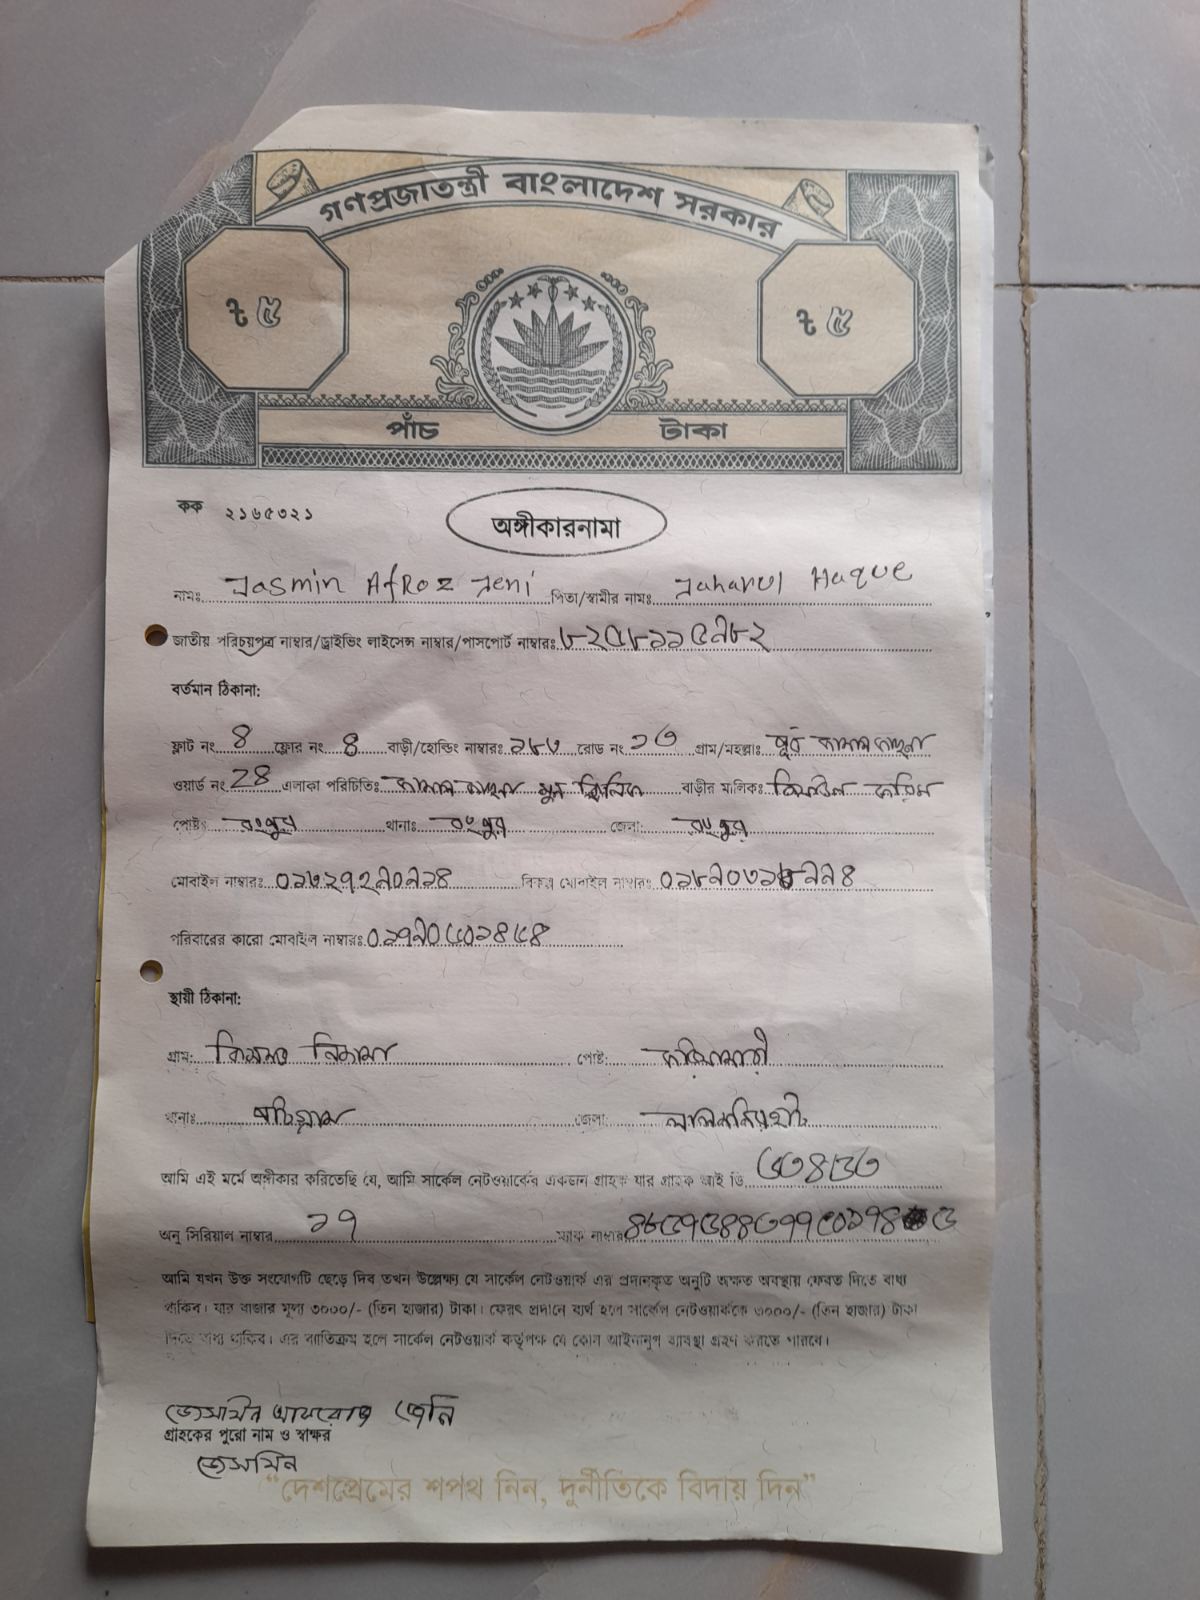 গণপ্রজাতন্ত্রী বাংলাদেশ সরকার
৳ ৫ ৳ ৫
পাঁচ টাকা
কক ২১৬৫৩২১
অঙ্গীকারনামা
নামঃ Jasmin Afroz Jeni পিতা/স্বামীর নামঃ Jaharul Haque
জাতীয় পরিচয়পত্র নাম্বার/ড্রাইভিং লাইসেন্স নাম্বার/পাসপোর্ট নাম্বারঃ ৮২৫৮১১৫৯৮২
বর্তমান ঠিকানা:
ফ্লাট নং 8 ফ্লোর নং 8 বাড়ী/হোল্ডিং নাম্বারঃ ১৮৩ রোড নং ১৩ গ্রাম/মহল্লাঃ পূর্ব কামাল কাছনা
ওয়ার্ড নং 28 এলাকা পরিচিতিঃ কামাল কাছনা ক্লিনিক বাড়ীর মালিকঃ করিম
পোষ্টঃ রংপুর থানাঃ রংপুর জেলা: রংপুর
মোবাইল নাম্বারঃ ০১৮৯০৩১৮৯৯৪
পরিবারের কারো মোবাইল নাম্বারঃ
স্থায়ী ঠিকানা:
গ্রাম: কিসমত নিজ্জমা পোষ্ট:
থানাঃ পাটগ্রাম জেলা: লালমনিরহাট
আমি এই মর্মে অঙ্গীকার করিতেছি যে, আমি সার্কেল নেটওয়ার্কের একজন গ্রাহক যার গ্রাহক আই ডি
অনু সিরিয়াল নাম্বার ১৭ ম্যাক নাম্বার
আমি যখন উক্ত সংযোগটি ছেড়ে দিব তখন উল্লেক্ষ্য যে সার্কেল নেটওয়ার্ক এর প্রদানকৃত অনুটি অক্ষত অবস্থায় ফেরত দিতে বাধ্য
থাকিব। যার বাজার মূল্য ৩০০০/- (তিন হাজার) টাকা। ফেরৎ প্রদানে ব্যর্থ হলে সার্কেল নেটওয়ার্ককে ৩০০০/- (তিন হাজার) টাকা
দিতে বাধ্য থাকিব। এর ব্যতিক্রম হলে সার্কেল নেটওয়ার্ক কর্তৃপক্ষ যে কোন আইনানুগ ব্যবস্থা গ্রহণ করতে পারবে।
জেসমিন আফরোজ জেনি
গ্রাহকের পুরো নাম ও স্বাক্ষর
জেসমিন
“দেশপ্রেমের শপথ নিন, দুর্নীতিকে বিদায় দিন”